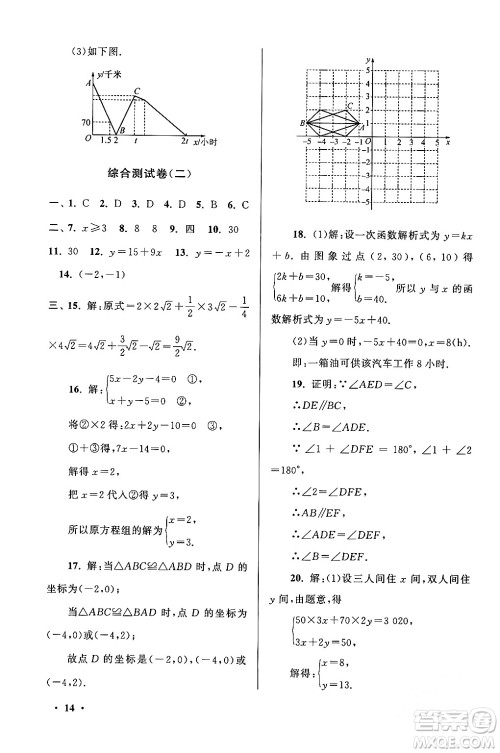 (3)如下图.
y/千米
A
C
70
B
O
1.5 2
t
2t
x/小时
综合测试卷(二)
一、1. C 2. D 3. D 4. C 5. D 6. C
二、7. x⩾3 8. 9 9. 四 10. 30
11. 30 12. y=15+9x 13. y=-x+2
14. (-2,-1)
三、15. 解:原式=2×2√2+3/2×3√2-1/4
×4√2=4√2+9/2√2-√2=15/2√2.
16. 解:{5x-2y-4=0 ①
x+y-5=0 ②
将②×2得:2x+2y-10=0 ③
①+③得:7x=14
解得:x=2
把 x=2 代入②得:y=3
所以原方程组的解为{x=2
y=3.
17. 解:当△ABC≌△ABD时,点 D 的
坐标为(-2,0)
当△ABC≌△BAD时,点 D 的坐标为
(-4,0)或(-4,2);
故点 D 的坐标是(-2,0),(-4,0)或
(-4,2).
• 14 •
y
5
4
3
2
1
B
A
-5 -4 -3 -2 -1 O 1 2 3 4 5 x
-1
-2
-3
-4
-5
18. (1)解:设一次函数解析式为 y=kx
+b. 由图象过点(2,30),(6,10)得
{2k+b=30
6k+b=10 解得{k=-5
b=40 所以 y 与 x 的函
数解析式为 y=-5x+40.
(2)当 y=0 时,x=8(h).
即:一箱油可供该汽车工作 8 小时.
19. 证明:∵∠AED=∠C,
∴DE∥BC.
∴∠B=∠ADE.
∵∠1+∠DFE=180°,∠1+∠2=
180°,
∴∠2=∠DFE.
∴AB∥EF.
∴∠ADE=∠DEF.
∴∠DEF=∠B.
20. 解:(1)设三人间住 x 间,双人间住
y 间,由题意,得
{50×3x+70×2y=3 020
3x+2y=50
解得:{x=8
y=13.